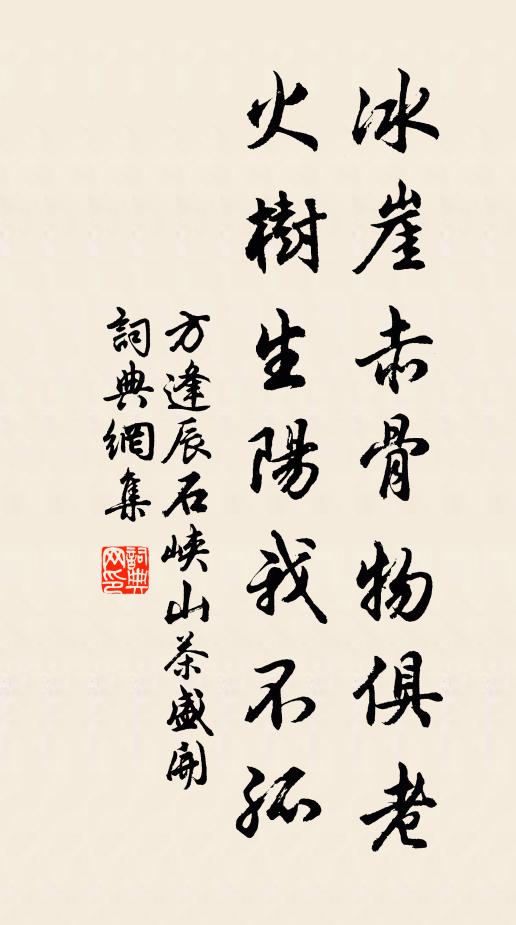 冰崖赤骨物俱老
火樹生陽我不孤
方逢辰石峽山茶盛開
詞典網集
詞典网印